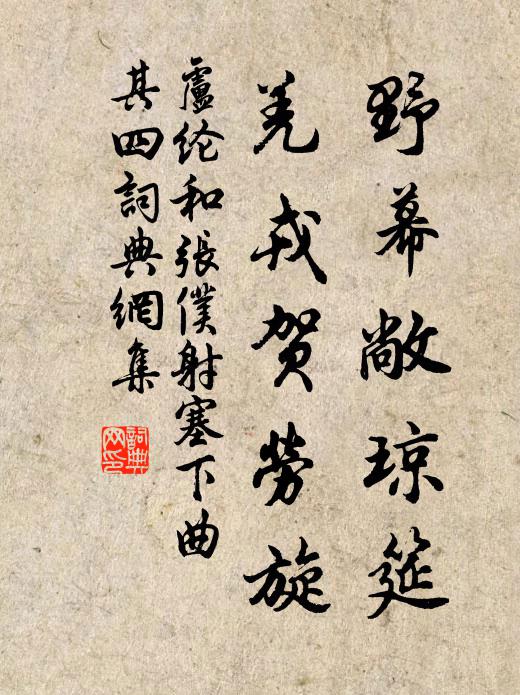 野幕敞琼筵
羌戎贺勞旋
盧纶和張僕射塞下曲
其四詞典網集
詞典
网印